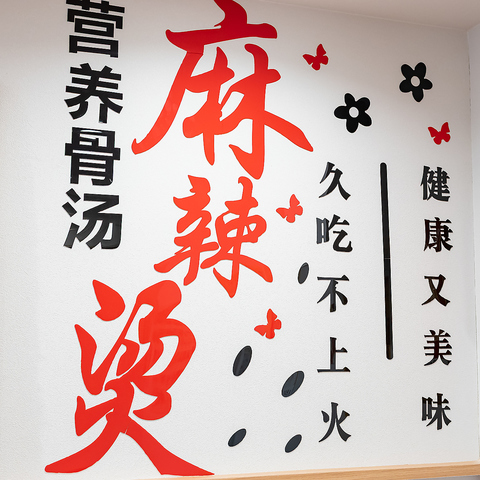 营养骨汤
麻辣烫
久吃不上火
健康又美味